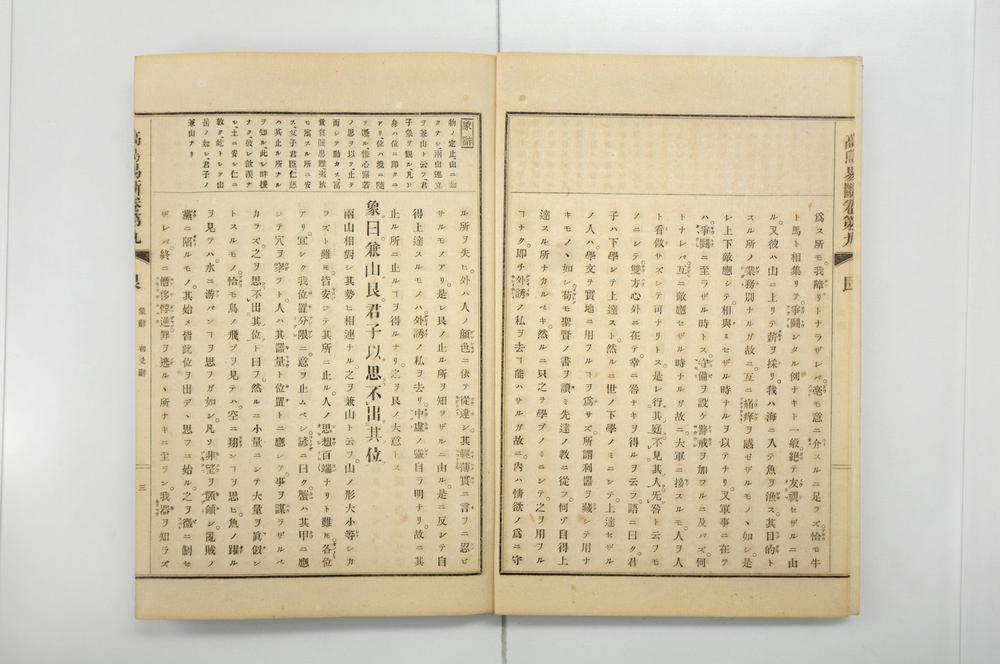 爲ス所モ我障リトナラザレバ毫モ意ニ介スルニ足ラズ恰モ牛
ト馬ト相集リヲ爭鬪シタル例ナキト一般絕テ友視セザルニ由
ル又彼ハ山ニ上リテ薪ヲ採リ我ハ海ニ入テ魚ヲ漁ス其目的ト
スル所ノ業務別ナルガ故ニ互ニ痛痒ヲ感ゼザルモノヽ如シ是
レ上下敵應シテ相與ミセザル時ナルヲ以テナリ又軍事ニ在テ
ハ爭鬪ニ至ラザル時トス守備ヲ設ケ警戒ヲ加フルニ及バズ何
トナレバ互ニ敵應セザル時ナルガ故ニ大軍ニ接スルモ人ヲ人
ト看做サズシテ可ナリトス是レ行其庭不見其人无咎ト云フモ
ノニシテ雙方心外ニ在テ幸ニ咎ナキヲ得ルヲ云フ語ニ曰ク君
子ハ下學シテ上達スト然ルニ世ノ下學ノミニシテ上達セザル
ノ人ハ學文ヲ實地ニ用フルヿヲ爲サズ所謂利器ヲ藏シテ用ナ
キモノヽ如シ苟モ聖賢ノ書ヲ讀ミ先達ノ敎ニ從フ何ゾ自得上
達スル所ナカルベキ然ルニ只之ヲ學ブノミニシテ之ヲ用フル
ヿナク卽チ外誘ノ私ヲ去ヿ能ハサルガ故ニ內ハ情欲ノ爲ニ守
高島易斷卷第九
艮
象辭
物ノ定止山ニ如
クナシ兩山連立
ヲ兼山ト云フ君
子象ヲ觀ル凡ソ
身ハ位ニ卽クニ
アリ位ハ境ニ隨
テ遷ル惟心寂若
ノ思ヲ以テ止テ
而シテ動カス富
貴貧賤患難夷狄
モ寓スル所ニ安
ス父子君臣仁慈
ハ其止ル所ナル
ヲ知ル此レ畔援
ナク彼レ歆羨ナ
シ土ニ安シ仁ニ
敦ク屹トシテ山
岳ノ如シ君子ノ
兼山ナリ
ル所ヲ失ヒ外ハ人ノ顏色ニ依テ從違シ其輕薄實ニ言フニ忍ビ
サルモノアリ是レ艮ノ止ル所ヲ知ラザルニ由ル是ニ反シテ自
得上達スルモノハ外誘ノ私ヲ去リ中虛ノ靈自ラ明ナリ故ニ其
止ル所ニ止ルヿヲ得ルナリ之ヲ艮ノ大意トス
象曰兼山艮君子以思不出其位
兩山相對シ其勢ヒ相連ナル之ヲ兼山ト云フ山ノ形大小等シカ
ラズト雖モ皆安シテ其所ニ止ル人ノ思想百端ナリト雖モ各位
アリ宜シク我位置分限ニ意ヲ止ムベシ諺ニ曰ク蟹ハ其甲ニ應
シテ穴ヲ穿ツト人ハ其器量ト位置トニ應シテ事ヲ謀ラザルベ
カラズ之ヲ思不出其位ト曰フ然ルニ小量ニシテ大量ヲ眞似ン
トスルモノ恰モ鳥ノ飛ブヲ見テハ空ニ翔ンヿヲ思ヒ魚ノ躍ル
ヲ見テハ水ニ游バンヿヲ思フガ如シ凡ソ非望ヲ覬覦シ亂賊ノ
黨ニ陷ルモノ其始メ皆此位ヲ出デヽ思フニ始ル之ヲ微ニ制セ
ザレバ終ニ僭侈悖逆罪ヲ逃ルヽ所ナキニ至ラン我器ヲ知ラズ
高島易斷卷第九
艮
象辭 初爻辭
三